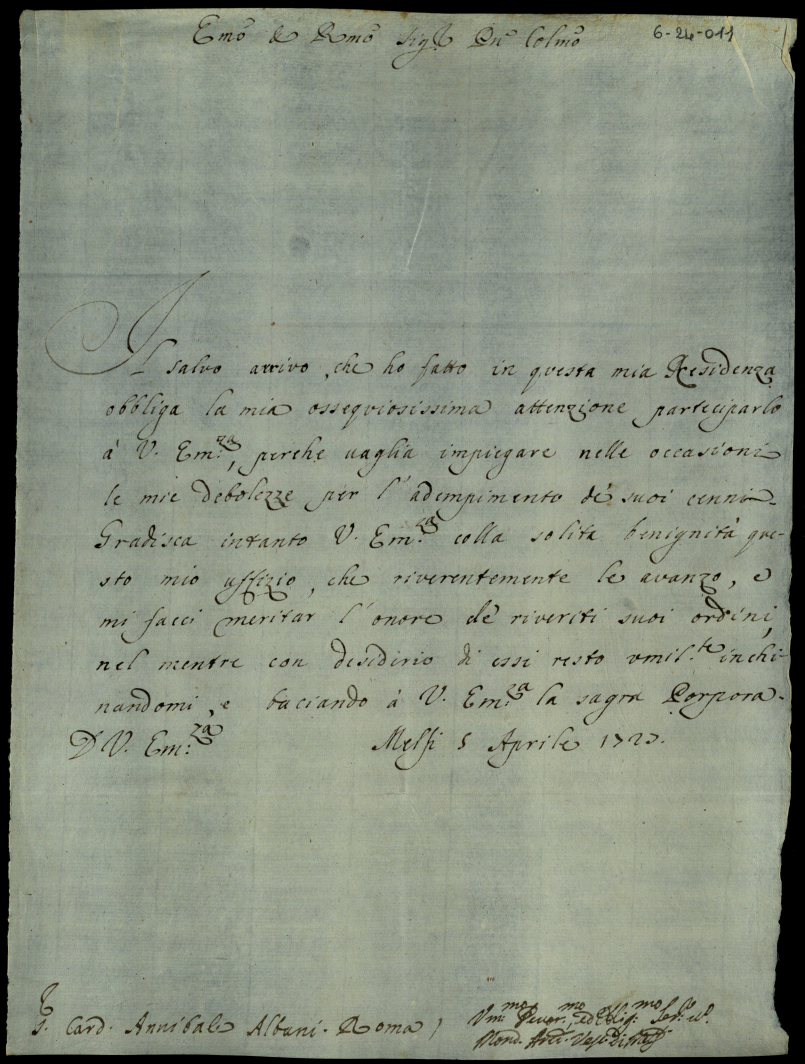 6-24-011
Emo e Rmo Sig.r Prn Colmo
Il salvo arrivo, che ho fatto in questa mia Residenza
obbliga la mia ossequiosissima attenzione parteciparlo
à V. Em.za, perche vaglia impiegare nelle occasioni
le mie debolezze per l'adempimento de' suoi cenni.
Gradisca intanto V. Em.za colla solita benignità que-
sto mio uffizio, che riverentemente le avanzo, e
mi facci meritar l'onore de' riveriti suoi ordini,
nel mentre con desidirio di essi resto umil.te inchi-
nandomi, e baciando à V. Em.za la sagra Porpora.
D V. Em.za Melfi 5 Aprile 1727.
S. Card. Annibale Albani. Roma
Um.mo Dever.mo ed Oblig.mo Ser.e